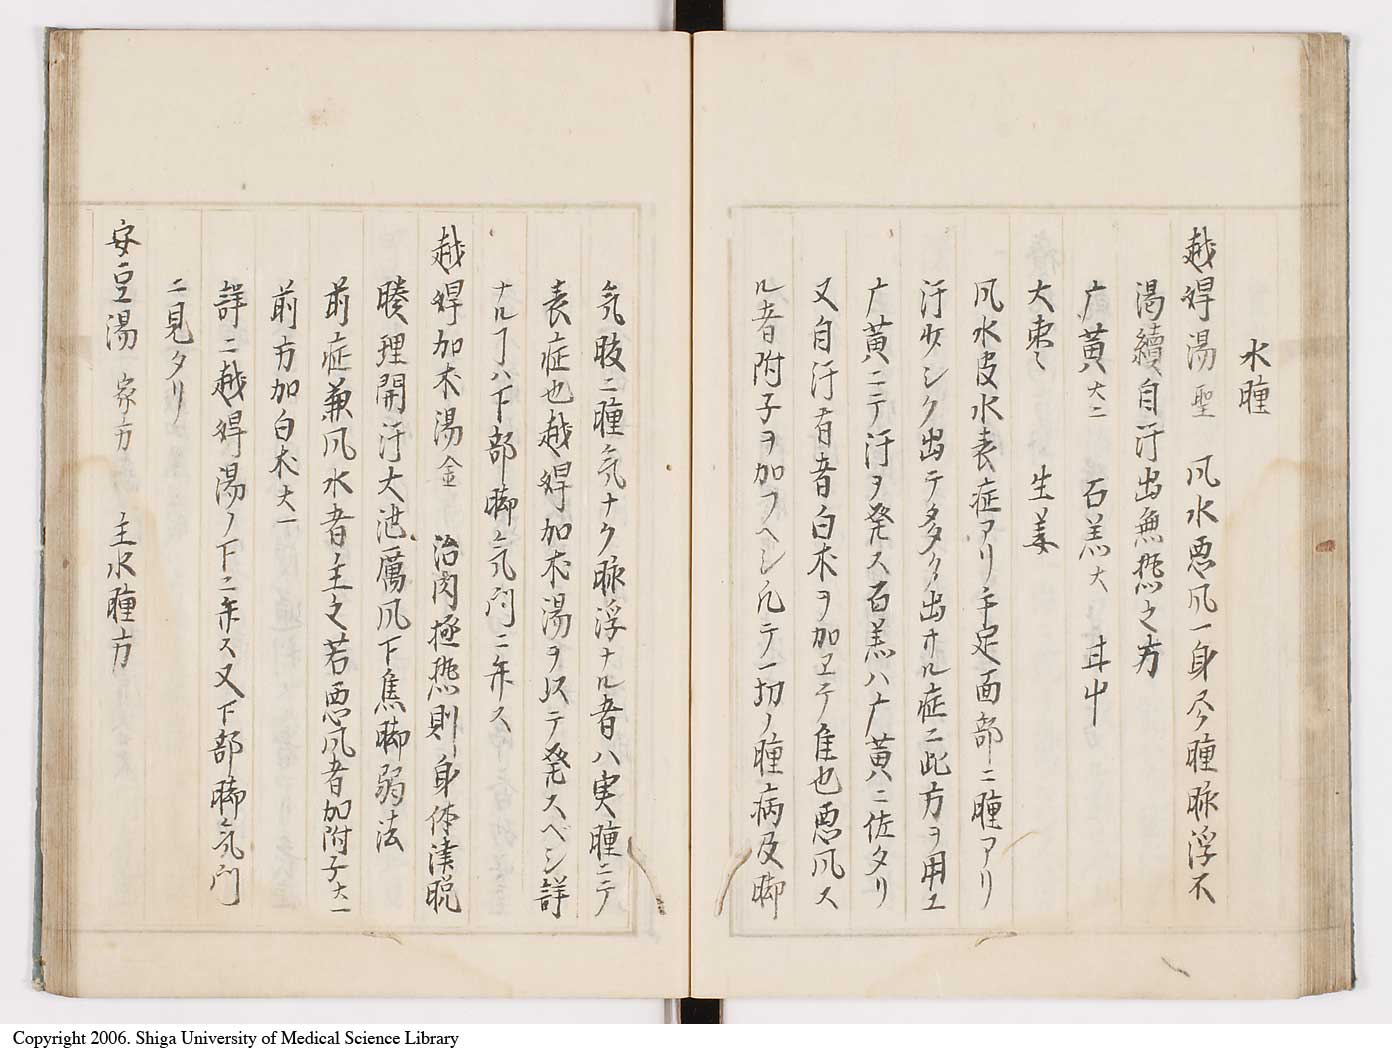 水腫
越婢湯 聖 風水悪風一身尽ク腫脉浮不
渇續自汗出無𤍠之方
广黄大二 石羔大 甘中
大棗〻 生姜
風水皮水表症アリ手足面部ニ腫アリ
汗少シク出テ多ク出サル症ニ此方ヲ用エ
广黄ニテ汗ヲ発ス石羔ハ广黄ニ佐タリ
又自汗有者白朮ヲ加エテ佳也悪風ス
ル者附子ヲ加フヘシ凡テ一切ノ腫病及脚
気肢ニ腫気ナク脉浮ナル者ハ実腫ニテ
表症也越婢加朮湯ヲ以テ発スベシ詳
ナルヿハ下部脚気門ニ弁ス
越婢加朮湯 金 治肉極𤍠則身体津脱
腠理開汗大泄厲風下焦脚弱法
前症兼風水者主之若悪風者加附子大一
前方加白朮大一
詳ニ越婢湯ノ下ニ弁ス又下部脚気門
ニ見タリ
安豆湯 家方 主水腫方
Copyright 2006. Shiga University of Medical Science Library